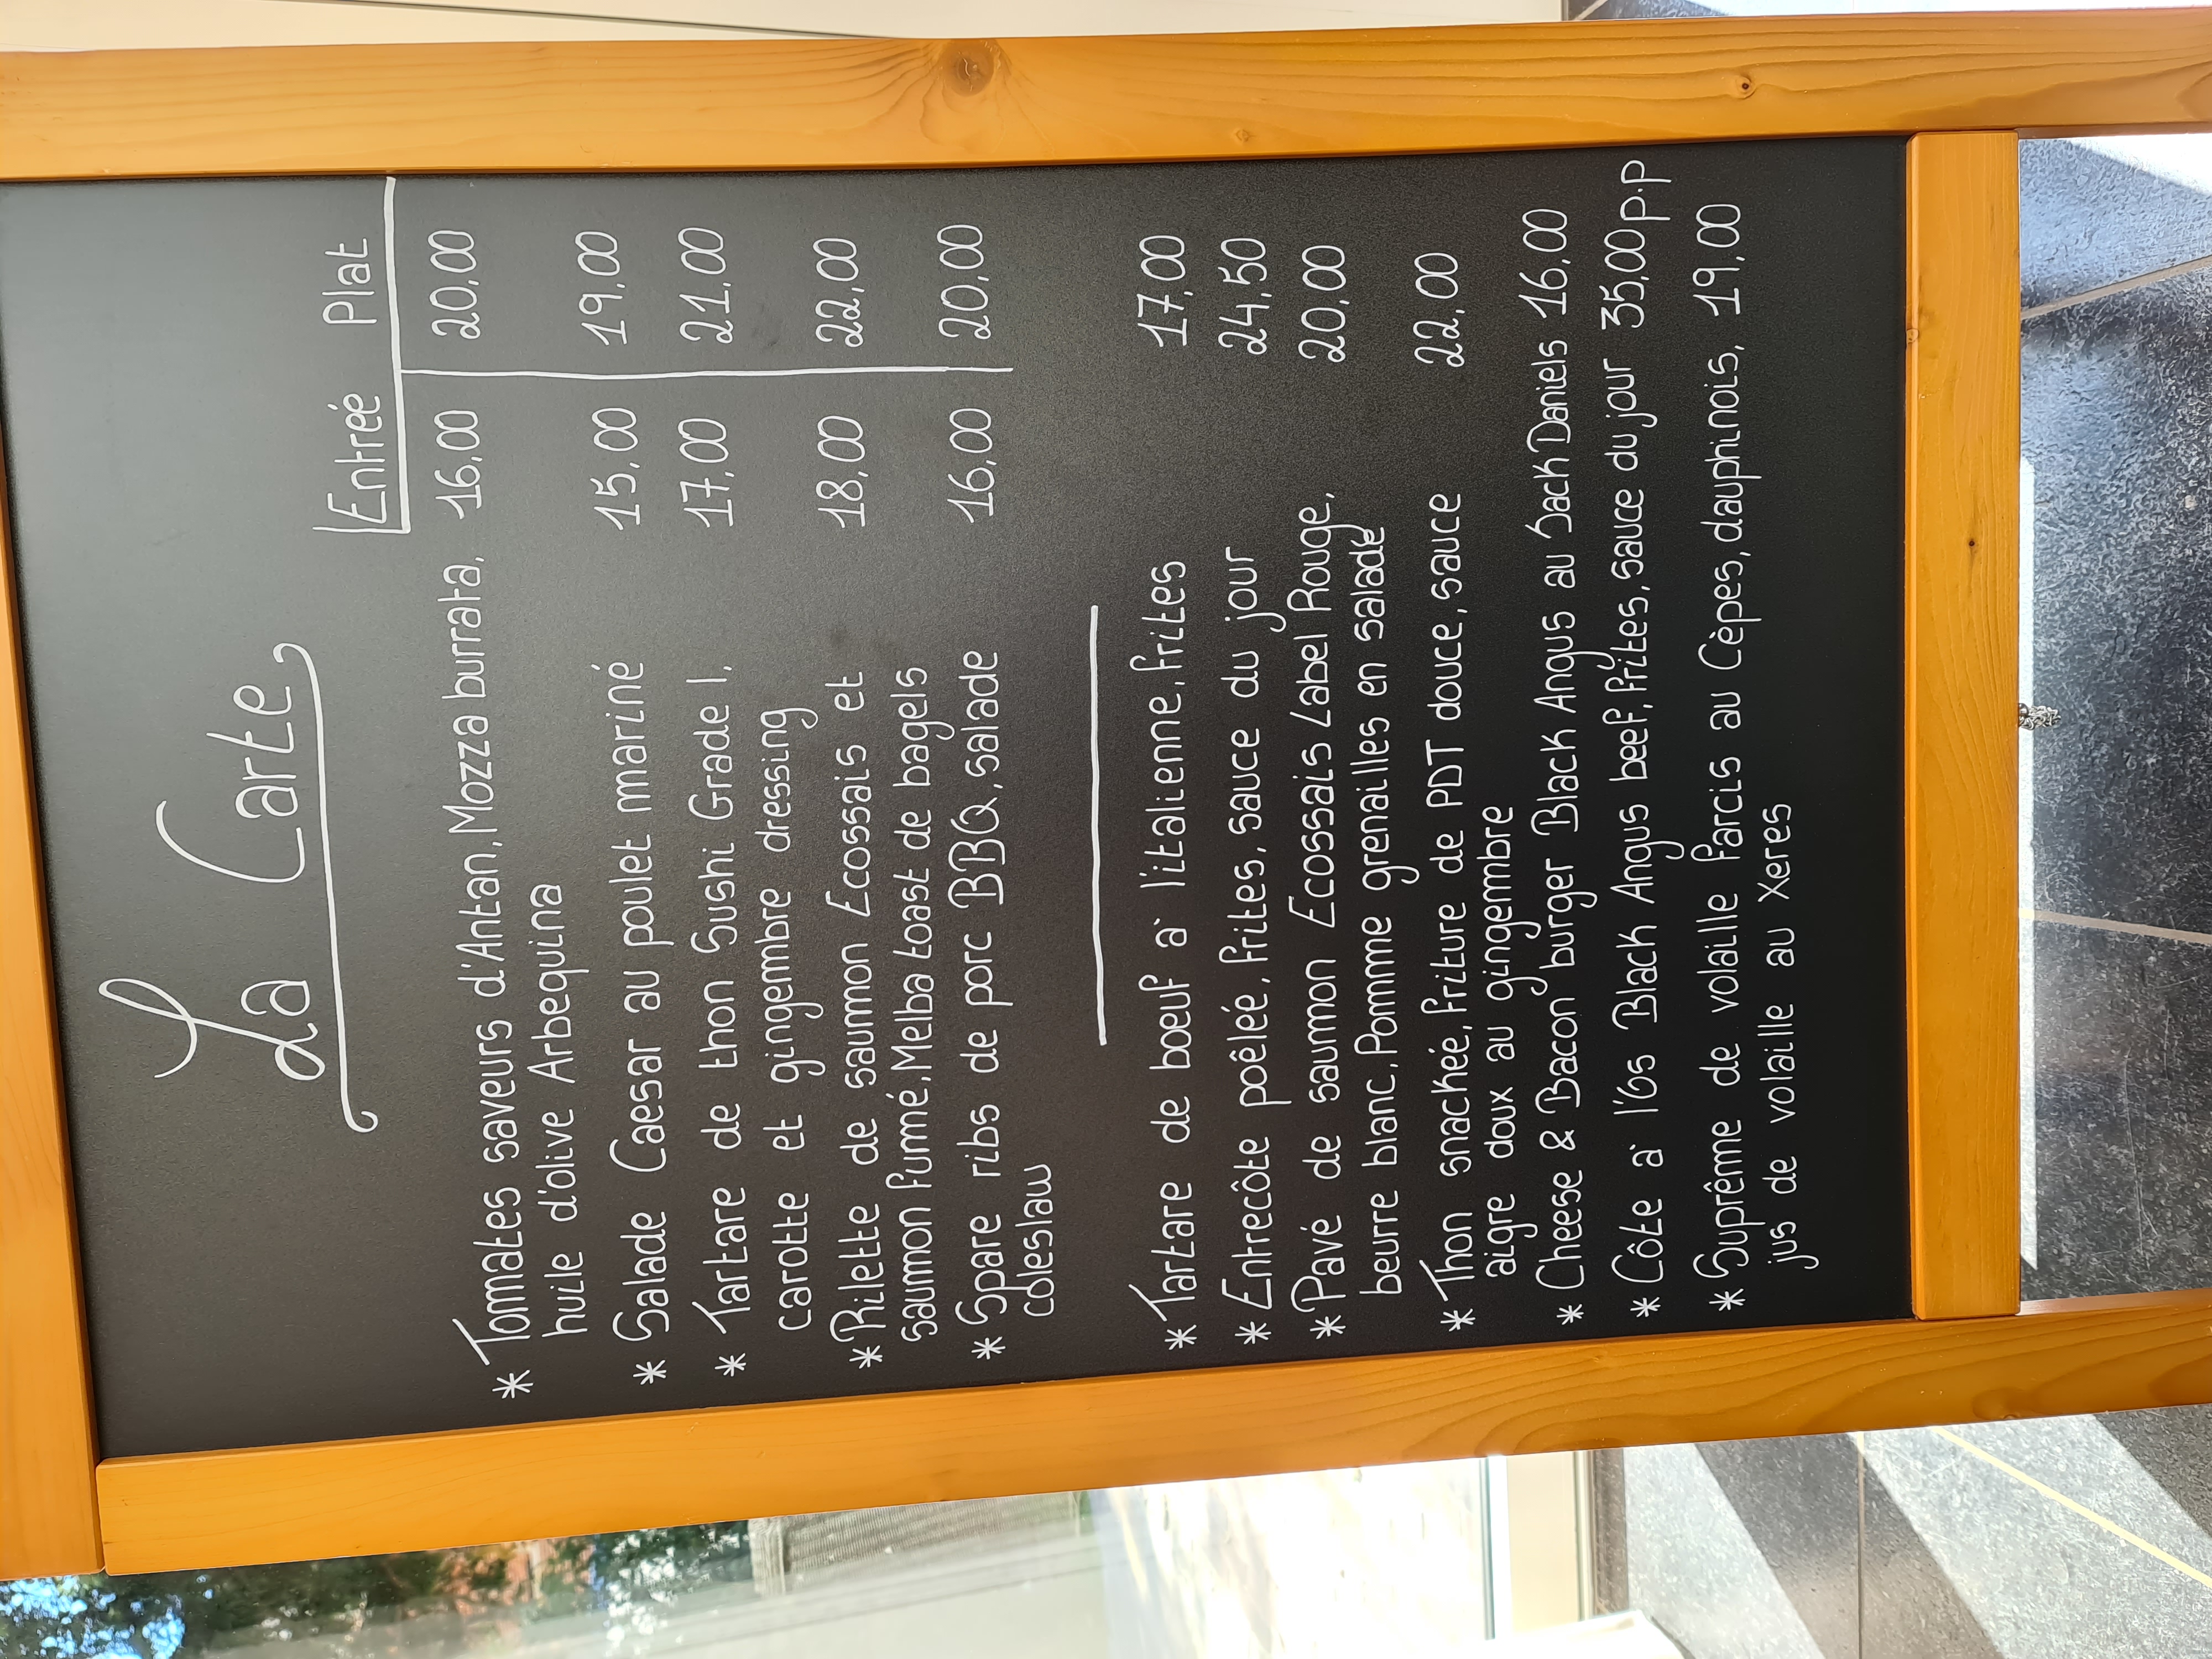 La Carte
Entrée Plat
* Tomates saveurs d'Antan, Mozza burrata, 16.00 20.00
huile d'olive Arbequina
* Salade Caesar au poulet mariné 15.00 19.00
* Tartare de thon Sushi Grade 1, 17,00 21.00
carotte et gingembre dressing
* Rilette de saumon Ecossais et 18,00 22,00
saumon fumé, Melba toast de bagels
* Spare ribs de porc BBQ, salade 16,00 20,00
coleslaw
* Tartare de bœuf à l'italienne, frites 17,00
* Entrecôte poêleé, frites, sauce du jour 24,50
* Pavé de saumon Ecossais Label Rouge, 20,00
beurre blanc, Pomme grenailles en salade
* Thon snackée, friture de PDT douce, sauce 22,00
aigre doux au gingembre
* Cheese & Bacon burger Black Angus au Jack Daniels 16,00
* Côte à l'Os Black Angus beef, frites, sauce du jour 35,00 p.p
* Suprême de volaille farcis au Cèpes, dauphinois, 19,00
jus de volaille au Xeres